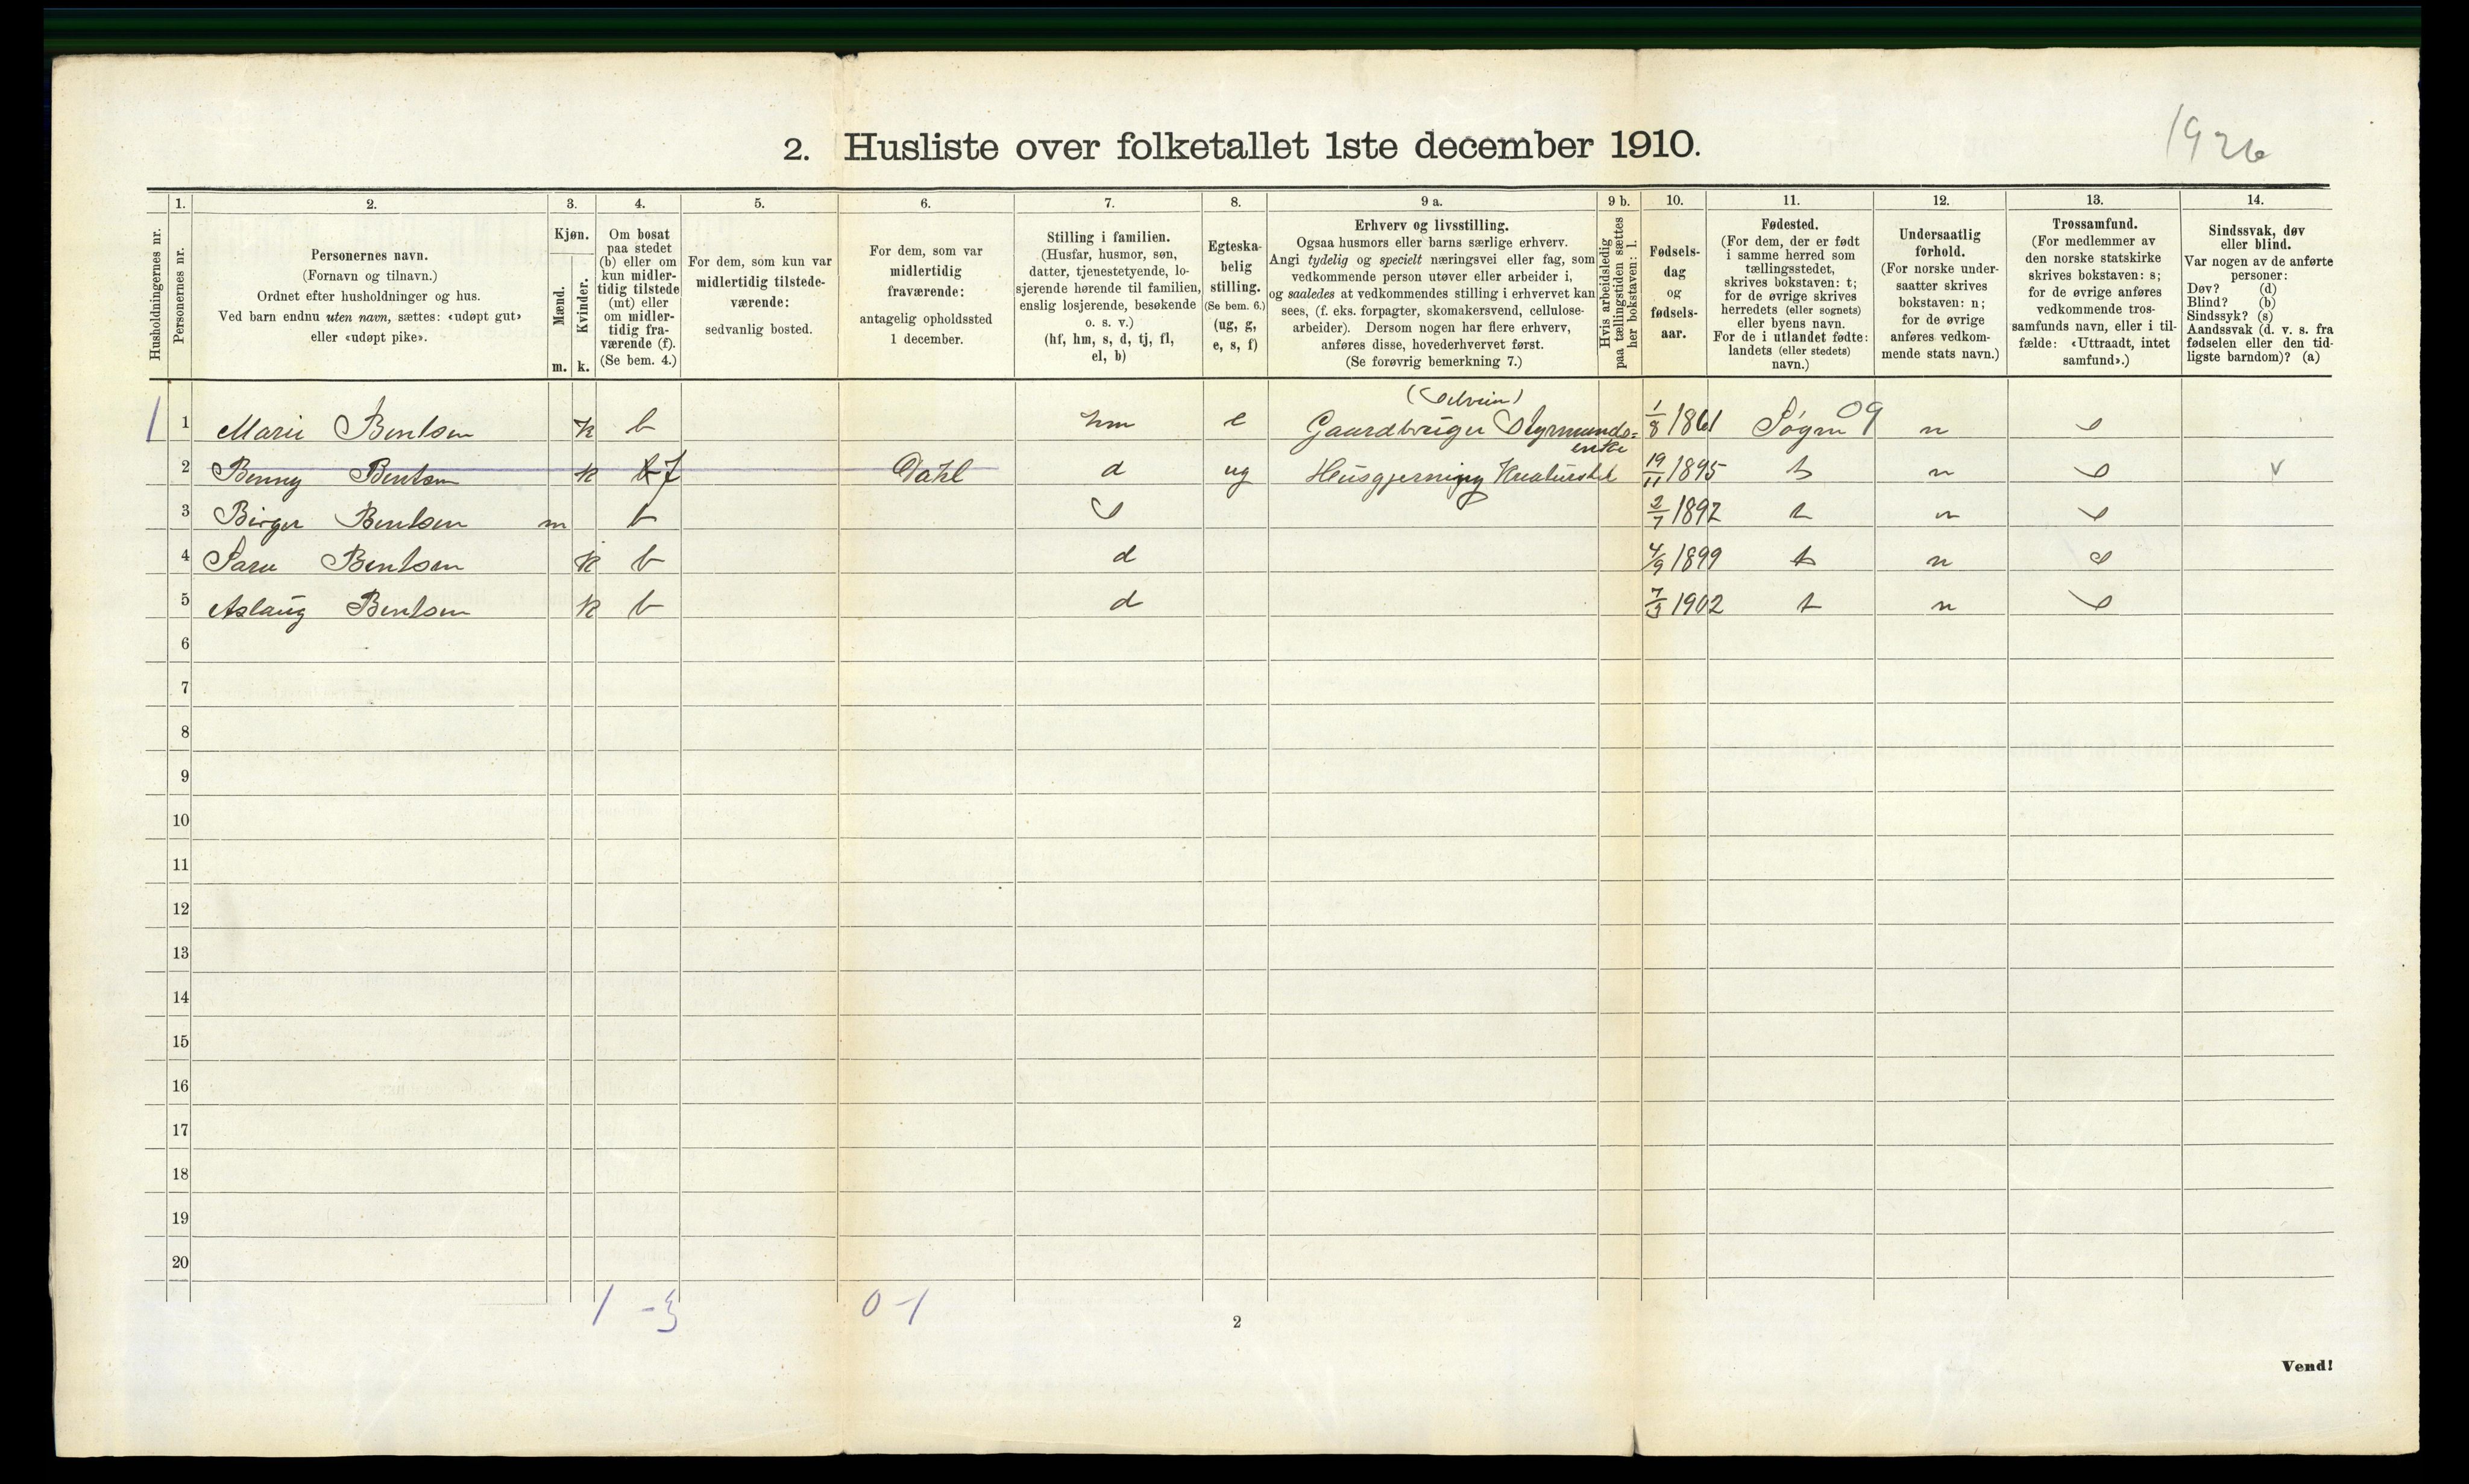 1926
2. Husliste over folketallet 1ste december 1910.
Husholdningernes nr.
1. Personernes nr.
2. Personernes navn.
(Fornavn og tilnavn.)
Ordnet efter husholdninger og hus.
Ved barn endnu uten navn, sættes: «udøpt gut»
eller «udøpt pike».
3. Kjøn.
Mænd. m.
Kvinder. k.
4. Om bosat
paa stedet
(b) eller om
kun midler-
tidig tilstede
(mt) eller
om midler-
tidig fra-
værende (f).
(Se bem. 4.)
5. For dem, som kun var
midlertidig tilstede-
værende:
sedvanlig bosted.
6. For dem, som var
midlertidig
fraværende:
antagelig opholdssted
1 december.
7. Stilling i familien.
(Husfar, husmor, søn,
datter, tjenestetyende, lo-
sjerende hørende til familien,
enslig losjerende, besøkende
o. s. v.)
(hf, hm, s, d, tj, fl,
el, b)
8. Egteska-
belig
stilling.
(Se bem. 6.)
(ug, g,
e, s, f)
9 a. Erhverv og livsstilling.
Ogsaa husmors eller barns særlige erhverv.
Angi tydelig og specielt næringsvei eller fag, som
vedkommende person utøver eller arbeider i,
og saaledes at vedkommendes stilling i erhvervet kan
sees, (f. eks. forpagter, skomakersvend, cellulose-
arbeider). Dersom nogen har flere erhverv,
anføres disse, hovederhvervet først.
(Se forøvrig bemerkning 7.)
9 b. Hvis arbeidsledig
paa tællingstiden sættes
her bokstaven: l.
10. Fødsels-
dag
og
fødsels-
aar.
11. Fødested.
(For dem, der er født
i samme herred som
tællingsstedet,
skrives bokstaven: t;
for de øvrige skrives
herredets (eller sognets)
eller byens navn.
For de i utlandet fødte:
landets (eller stedets)
navn.)
12. Undersaatlig
forhold.
(For norske under-
saatter skrives
bokstaven: n;
for de øvrige
anføres vedkom-
mende stats navn.)
13. Trossamfund.
(For medlemmer av
den norske statskirke
skrives bokstaven: s;
for de øvrige anføres
vedkommende tros-
samfunds navn, eller i til-
fælde: «Uttraadt, intet
samfund».)
14. Sindssvak, døv
eller blind.
Var nogen av de anførte
personer:
Døv? (d)
Blind? (b)
Sindssyk? (s)
Aandssvak (d. v. s. fra
fødselen eller den tid-
ligste barndom)? (a)
1 1 Marie Bentsen k b hm e Gaardbruger Styrmands= enke 1/8 1861 Søgne 09 n s
2 Benny Bentsen k b f Dahl d ug Husgjerning Kreaturstel 19/11 1895 t n s v
3 Birger Bentsen m b s 2/7 1892 t n s
4 Sara Bentsen k b d 4/9 1899 t n s
5 Aslaug Bentsen k b d 7/3 1902 t n s
6
7
8
9
10
11
12
13
14
15
16
17
18
19
20
1 - 3 0 - 1
2
Vend!